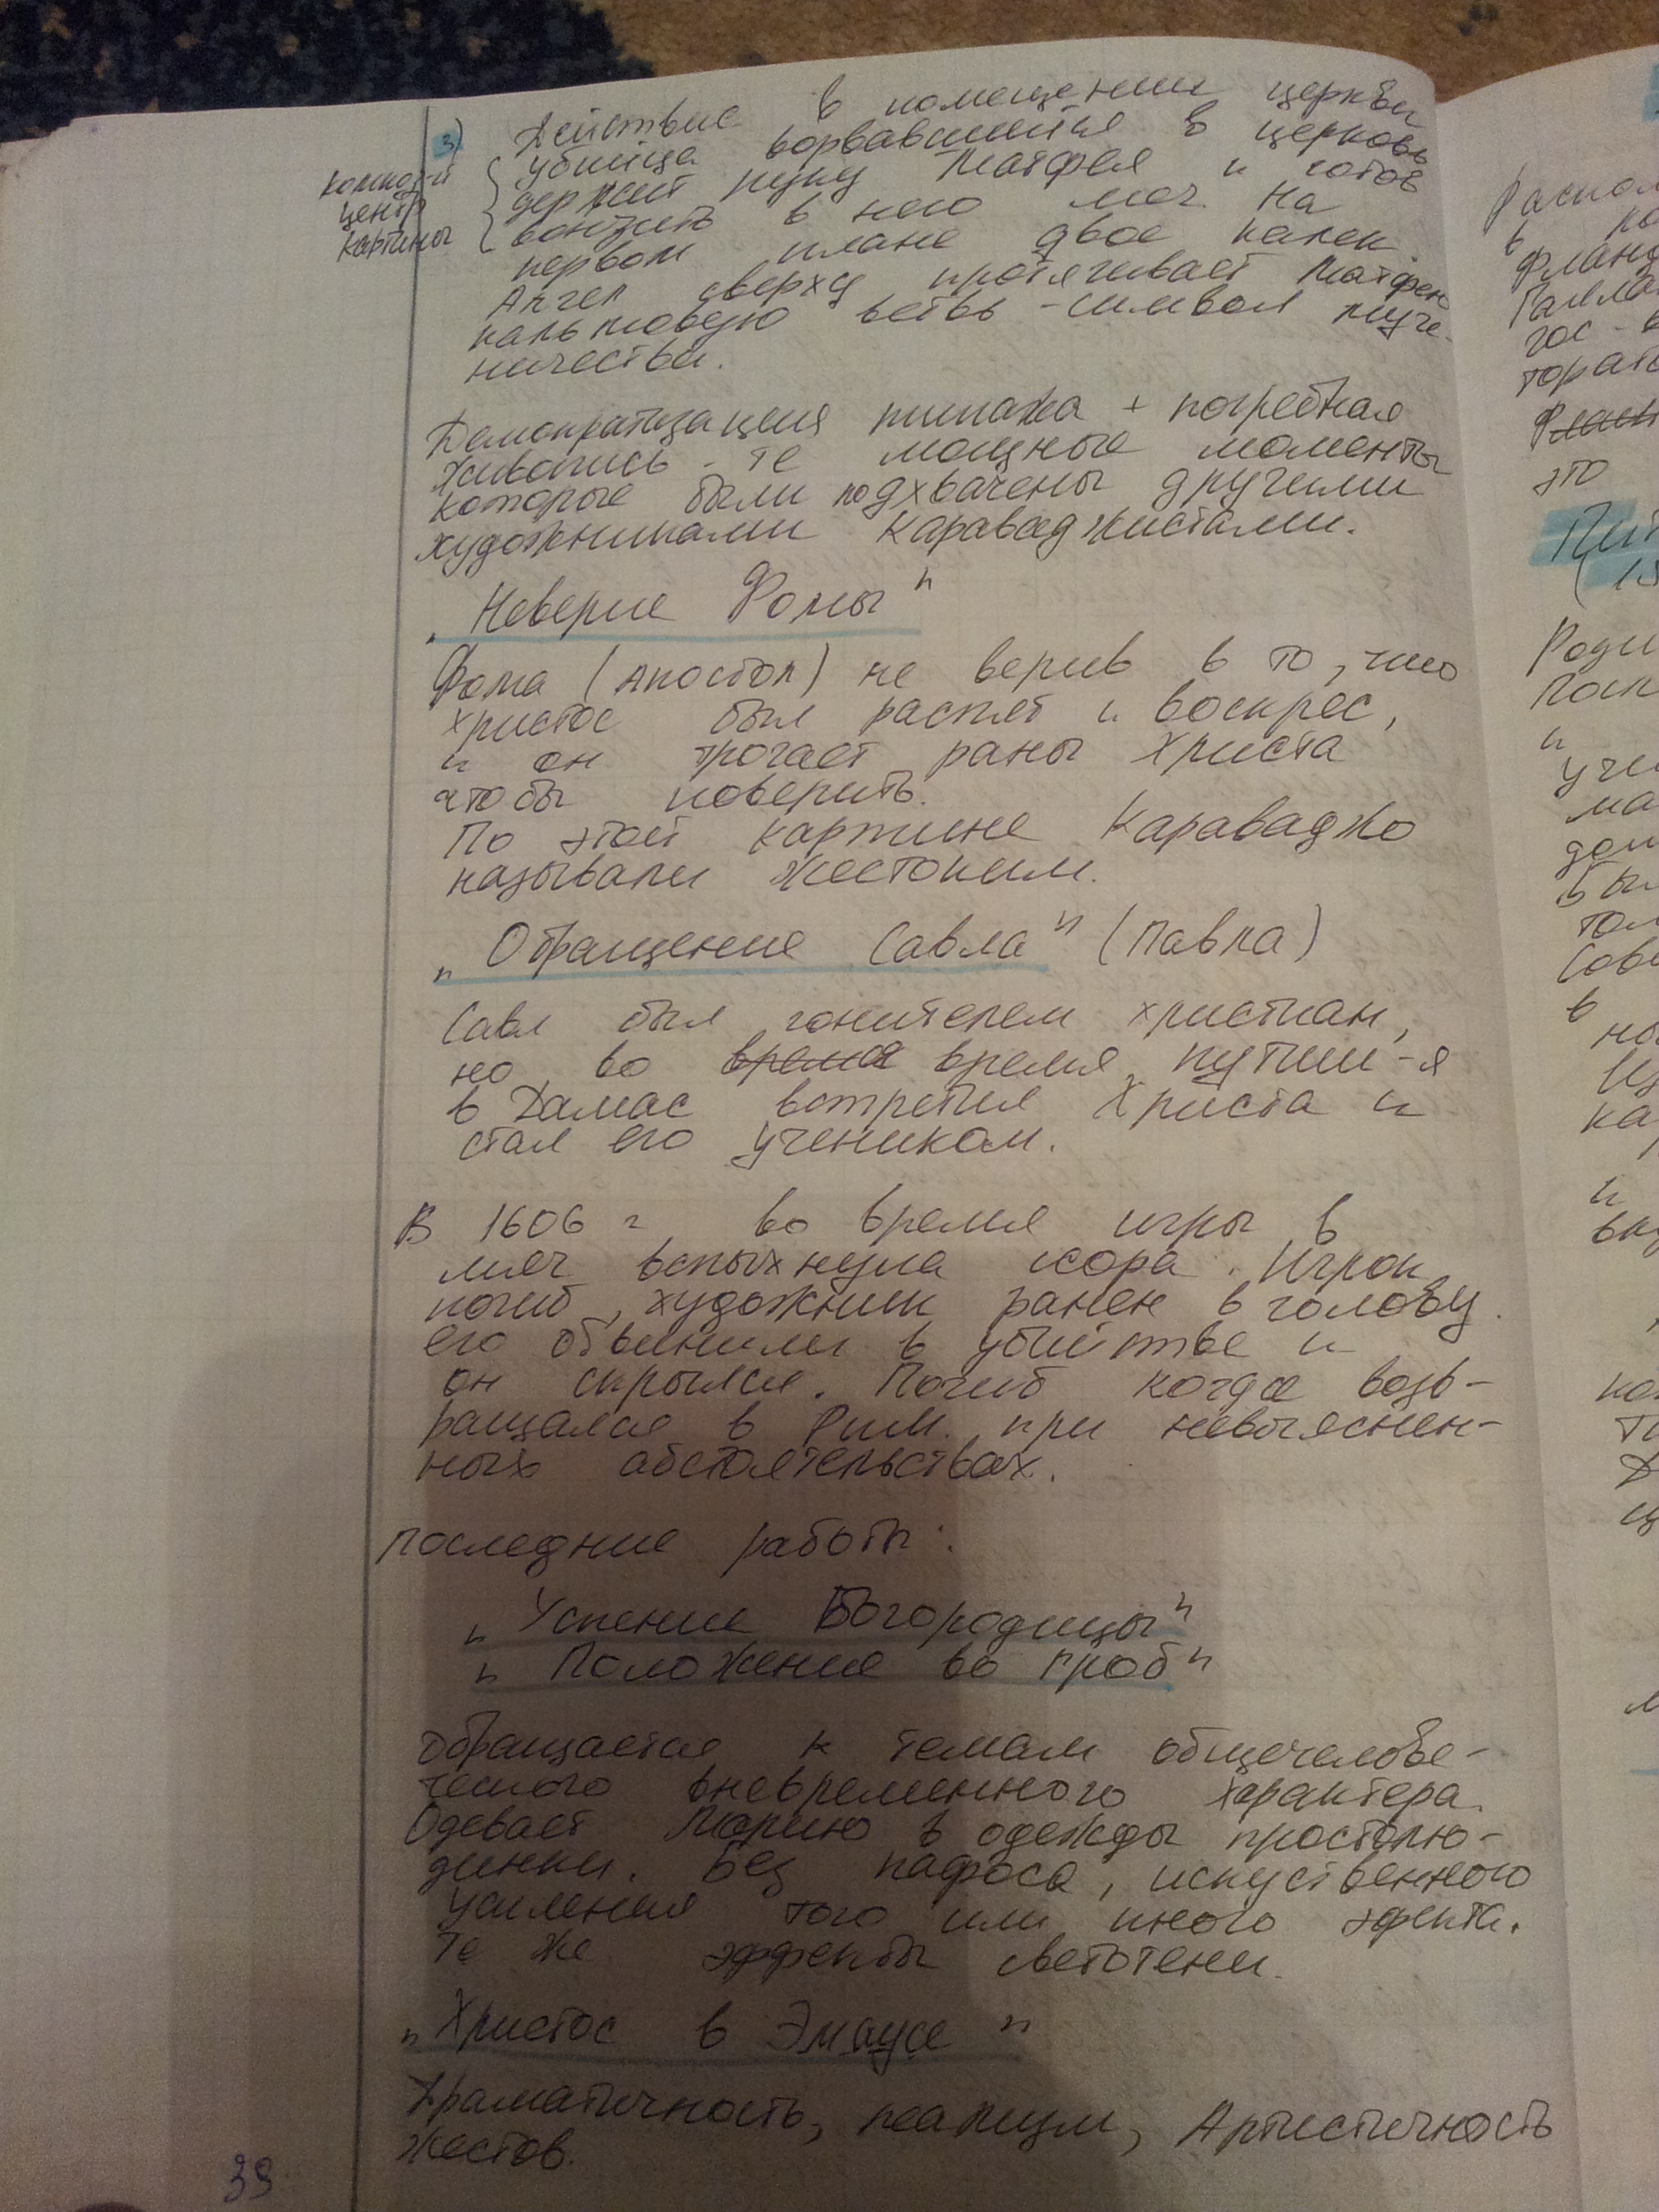 3) Действие в помещении церкви
убийца ворвавшийся в церковь
держит руку Матфея и готов
вонзить в него меч. На
композ-й
центр
картины
первом плане двое калек
Ангел сверху протягивает Матфею
пальмовую ветвь - символ муче-
ничества.
Демократизация типажа + погребная
живопись - те мощные моменты
которые были подхвачены другими
художниками караваджистами.
„Неверие Фомы"
Фома (апостол) не верив в то, что
Христос был распят и воскрес,
и он трогает раны Христа
чтобы поверить.
По этой картине Караваджо
называли жестоким.
„Обращение Савла" (Павла)
Савл был гонителем христиан,
но во время время путеш-я
в Дамас встретил Христа и
стал его учеником.
В 1606 г во время игры в
мяч вспыхнула ссора. Игрок
погиб, художник ранен в голову.
его обвинили в убийстве и
он скрылся. Погиб когда возв-
ращался в Рим. при невыяснен-
ных обстоятельствах.
последние работы:
„Успение Богородицы"
„Положение во гроб"
обращается к темам общечелове-
ческого вневременного характера.
Одевает Марию в одежды простолю-
динки. Без пафоса, искуственного
усиления того или иного эфекта.
Те же эффекты светотени.
„Христос в Эмаусе"
Драматичность, реализм, Артистичность
жестов.
39
в
Фланд
это
Пит
(15
Роди
и
в
и